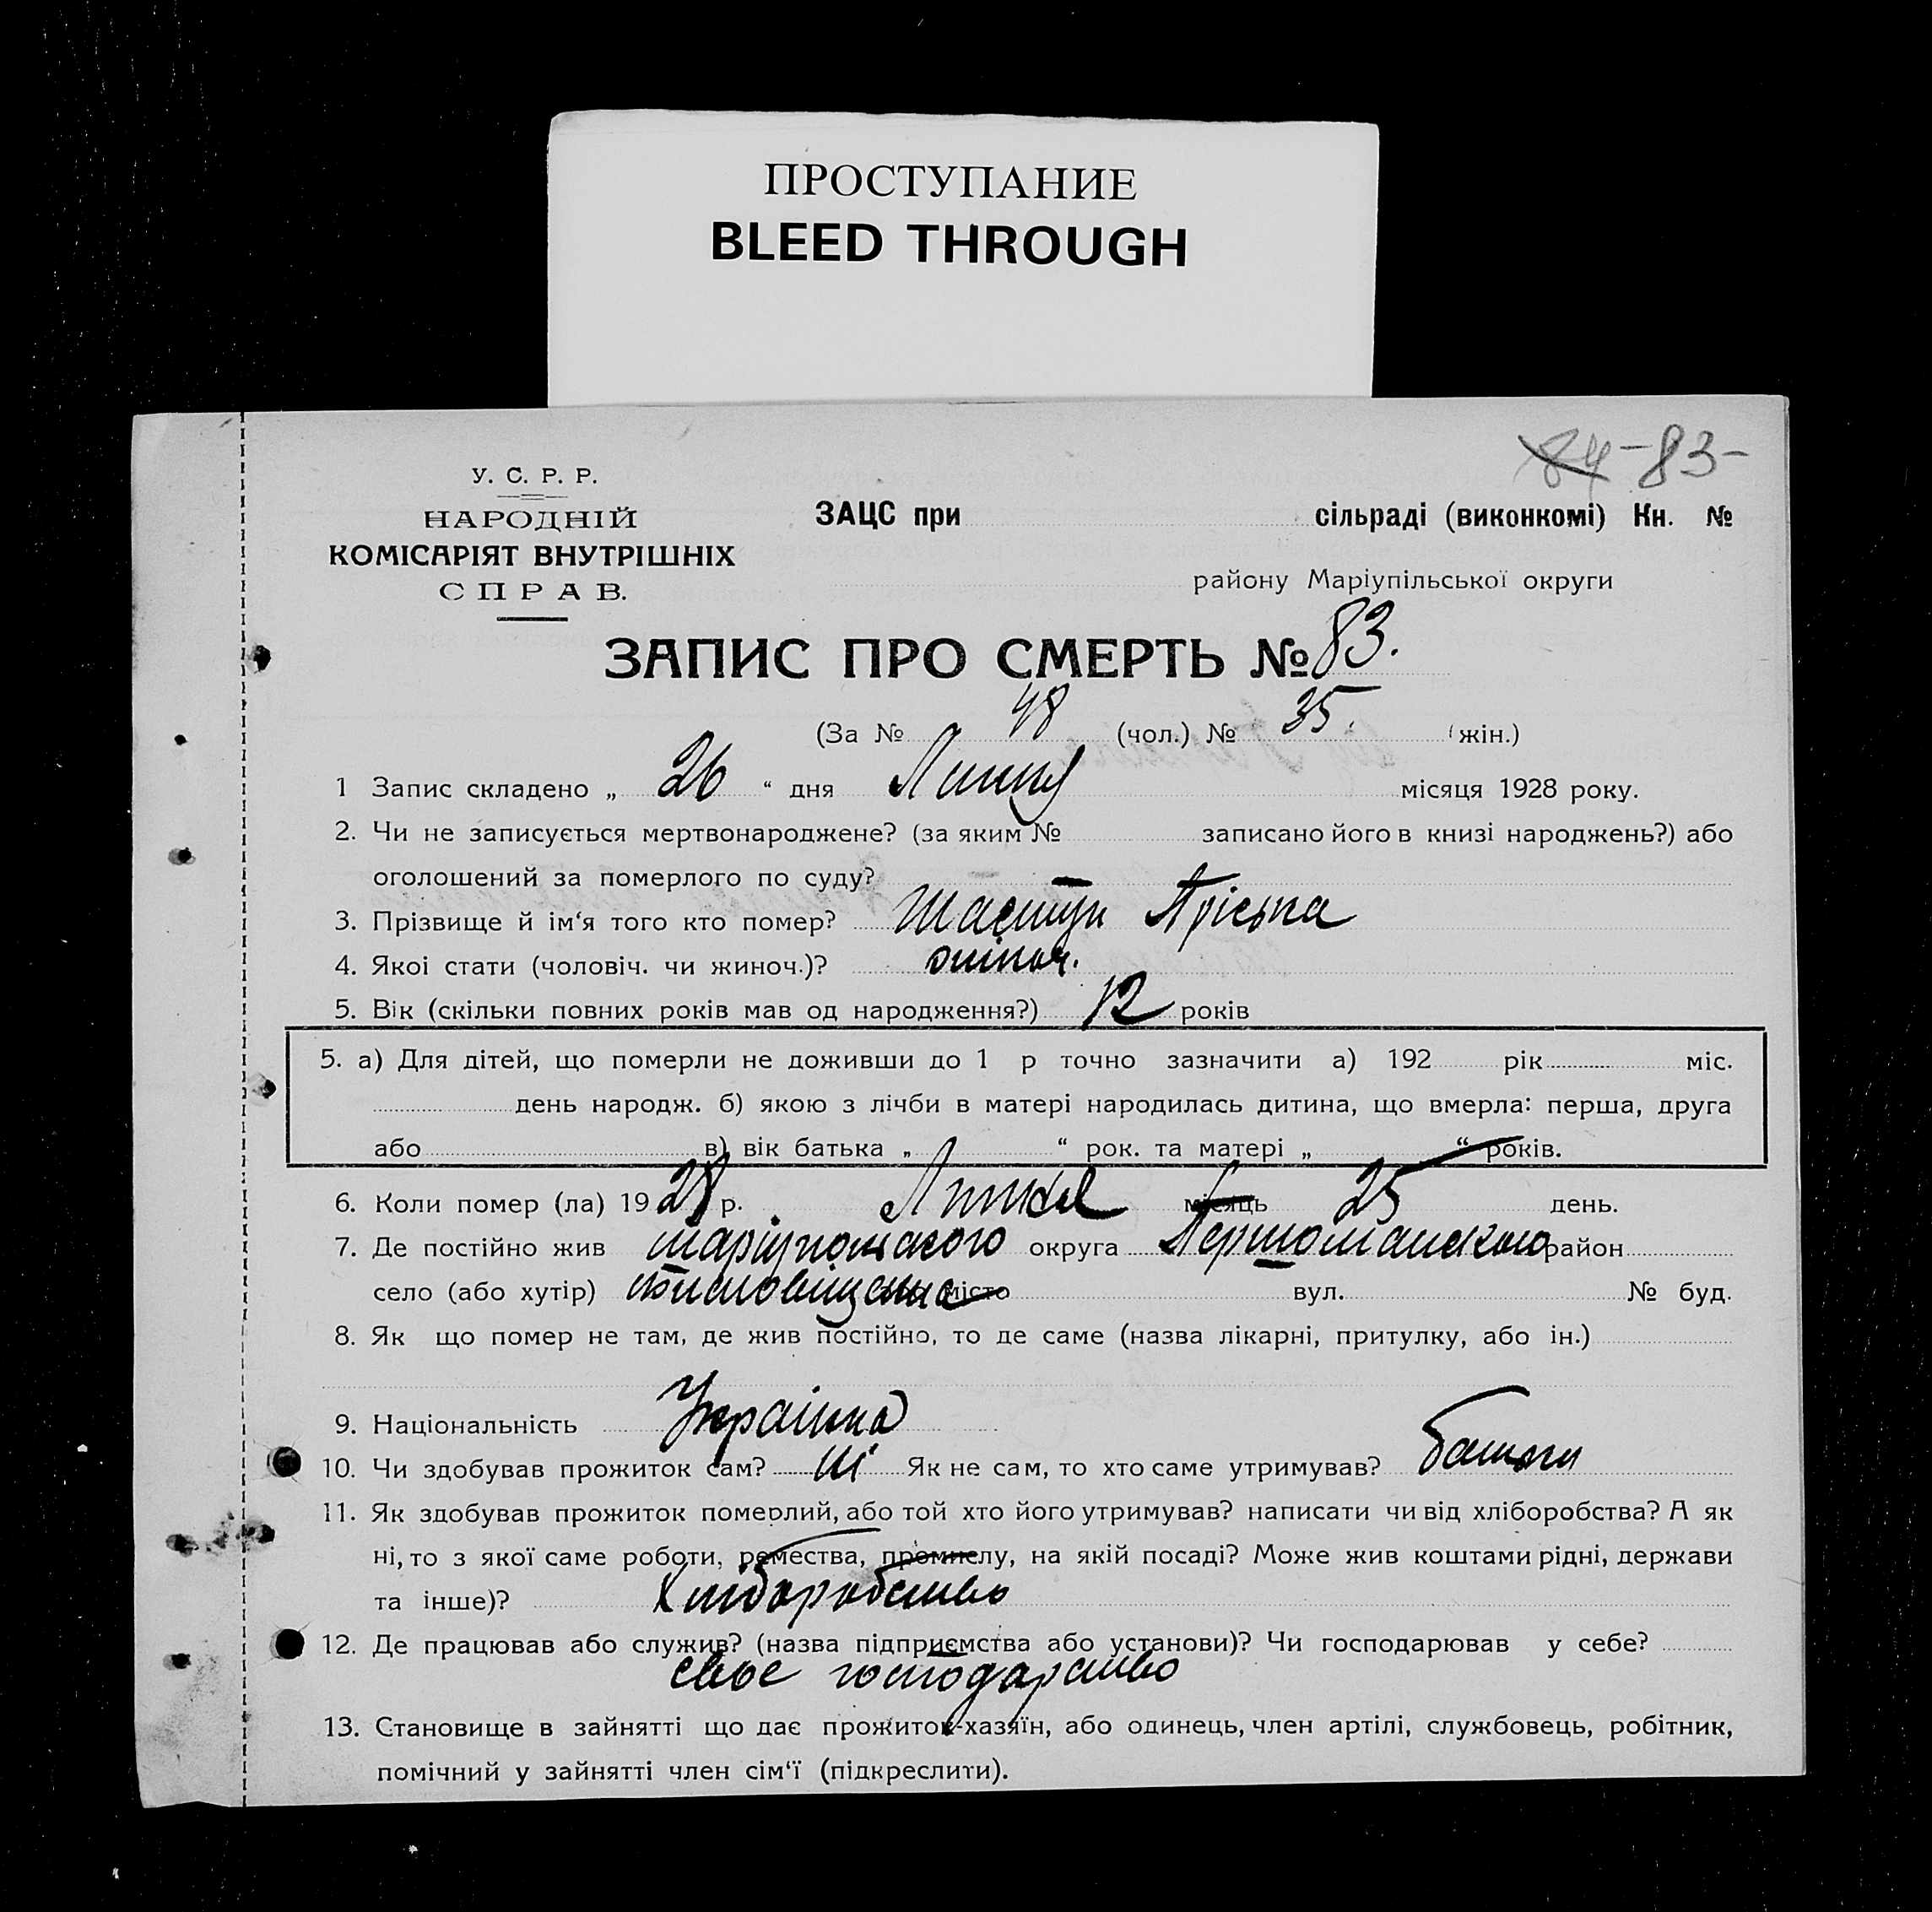 ПРОСТУПАНИЕ
BLEED THROUGH
84 -83-
У. С. Р. Р.
НАРОДНІЙ
КОМІСАРІЯТ ВНУТРІШНІХ
СПРАВ.
ЗАЦС при сільраді (виконкомі) Кн. №
району Маріупільської округи
ЗАПИС ПРО СМЕРТЬ № 83.
(За № 48 (чол.) № 35 (жін.)
1 Запис складено „ 26 “ дня Липня місяця 1928 року.
2. Чи не записується мертвонароджене? (за яким № записано його в книзі народжень?) або
оголошений за померлого по суду?
3. Прізвище й ім‘я того кто помер? Шастун Пріська
4. Якоі стати (чоловіч. чи жиноч.)? жіноч.
5. Вік (скільки повних років мав од народження?) 12 років
5. а) Для дітей, що померли не доживши до 1 р точно зазначити а) 192 рік міс.
день народж. б) якою з лічби в матері народилась дитина, що вмерла: перша, друга
або в) вік батька „ “ рок. та матері „ “ років.
6. Коли помер (ла) 1928 р. Липня місяць 25 день.
7. Де постійно жив Маріупольського округа Першотравенського район
село (або хутір) місто вул. № буд.
8. Як що помер не там, де жив постійно, то де саме (назва лікарні, притулку, або ін.)
9. Національність Українка
10. Чи здобував прожиток сам? ні Як не сам, то хто саме утримував? батьки
11. Як здобував прожиток померлий, або той хто його утримував? написати чи від хліборобства? А як
ні, то з якої саме роботи, ремества, промислу, на якій посаді? Може жив коштами рідні, держави
та інше)? Хліборобство
12. Де працював або служив? (назва підприємства або установи)? Чи господарював у себе?
своє господарство
13. Становище в зайнятті що дає прожиток-хазяїн, або одинець, член артілі, службовець, робітник,
помічний у зайнятті член сім‘ї (підкреслити).